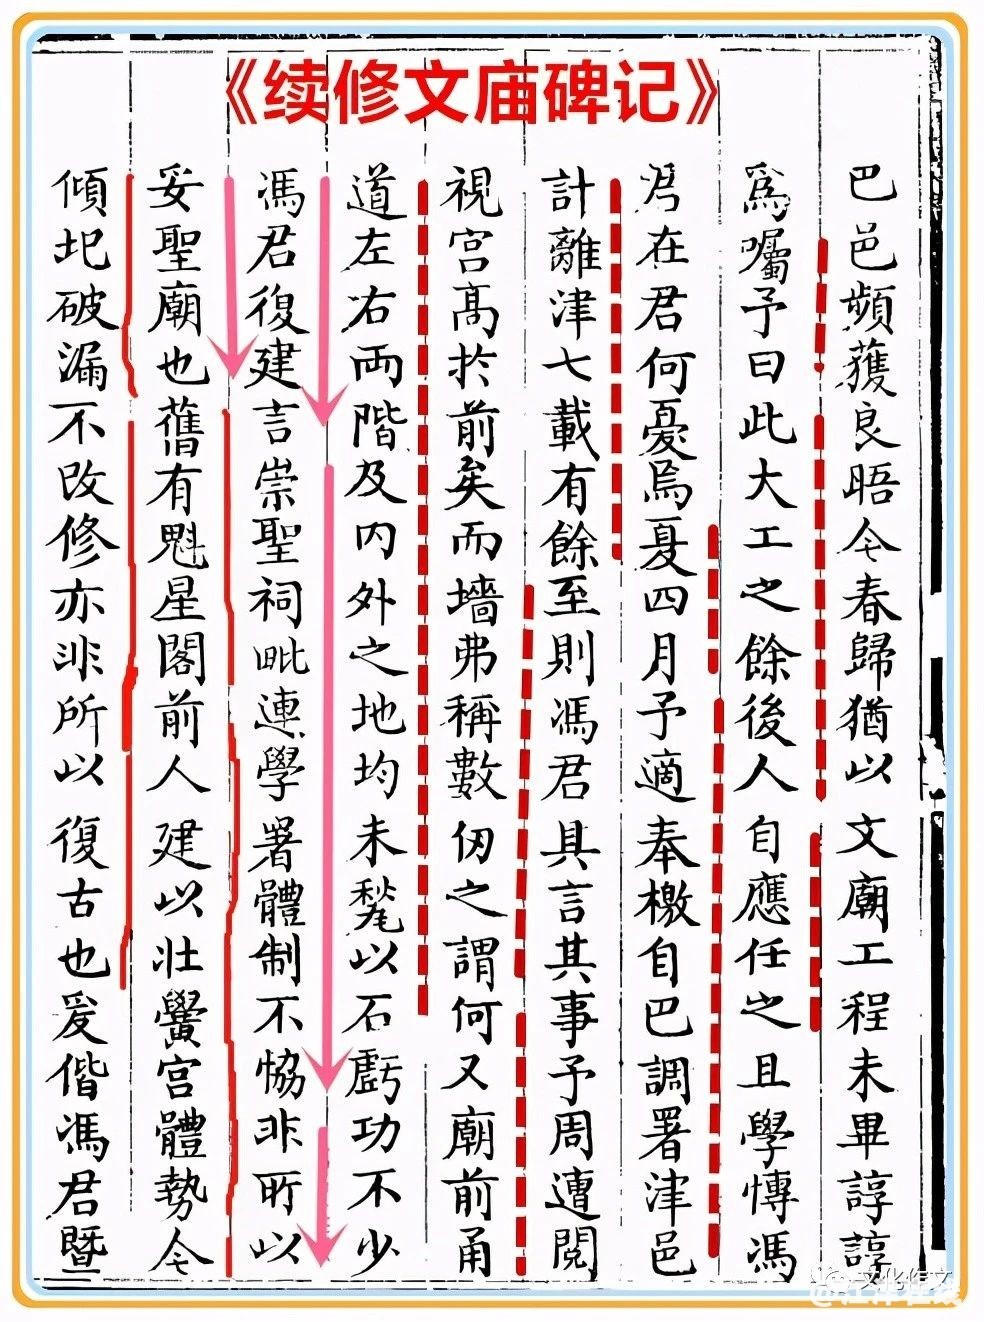 《续修文庙碑记》
巴邑頻獲良晤今春歸猶以文廟工程未畢諄諄
爲囑予曰此大工之餘後人自應任之且學博馮
君在君何憂焉夏四月予適奉檄自巴調署津邑
計離津七載有餘至則馮君具言其事予周遭閱
視宮高於前矣而墻弗稱數仞之謂何又廟前甬
道左右兩階及內外之地均未甃以石虧功不少
馮君復建言崇聖祠毗連學署體制不恊非所以
妥聖廟也舊有魁星閣前人建以壯黌宮體勢今
傾圯破漏不改修亦非所以復古也爰偕馮君暨
文化作文
@江津在线